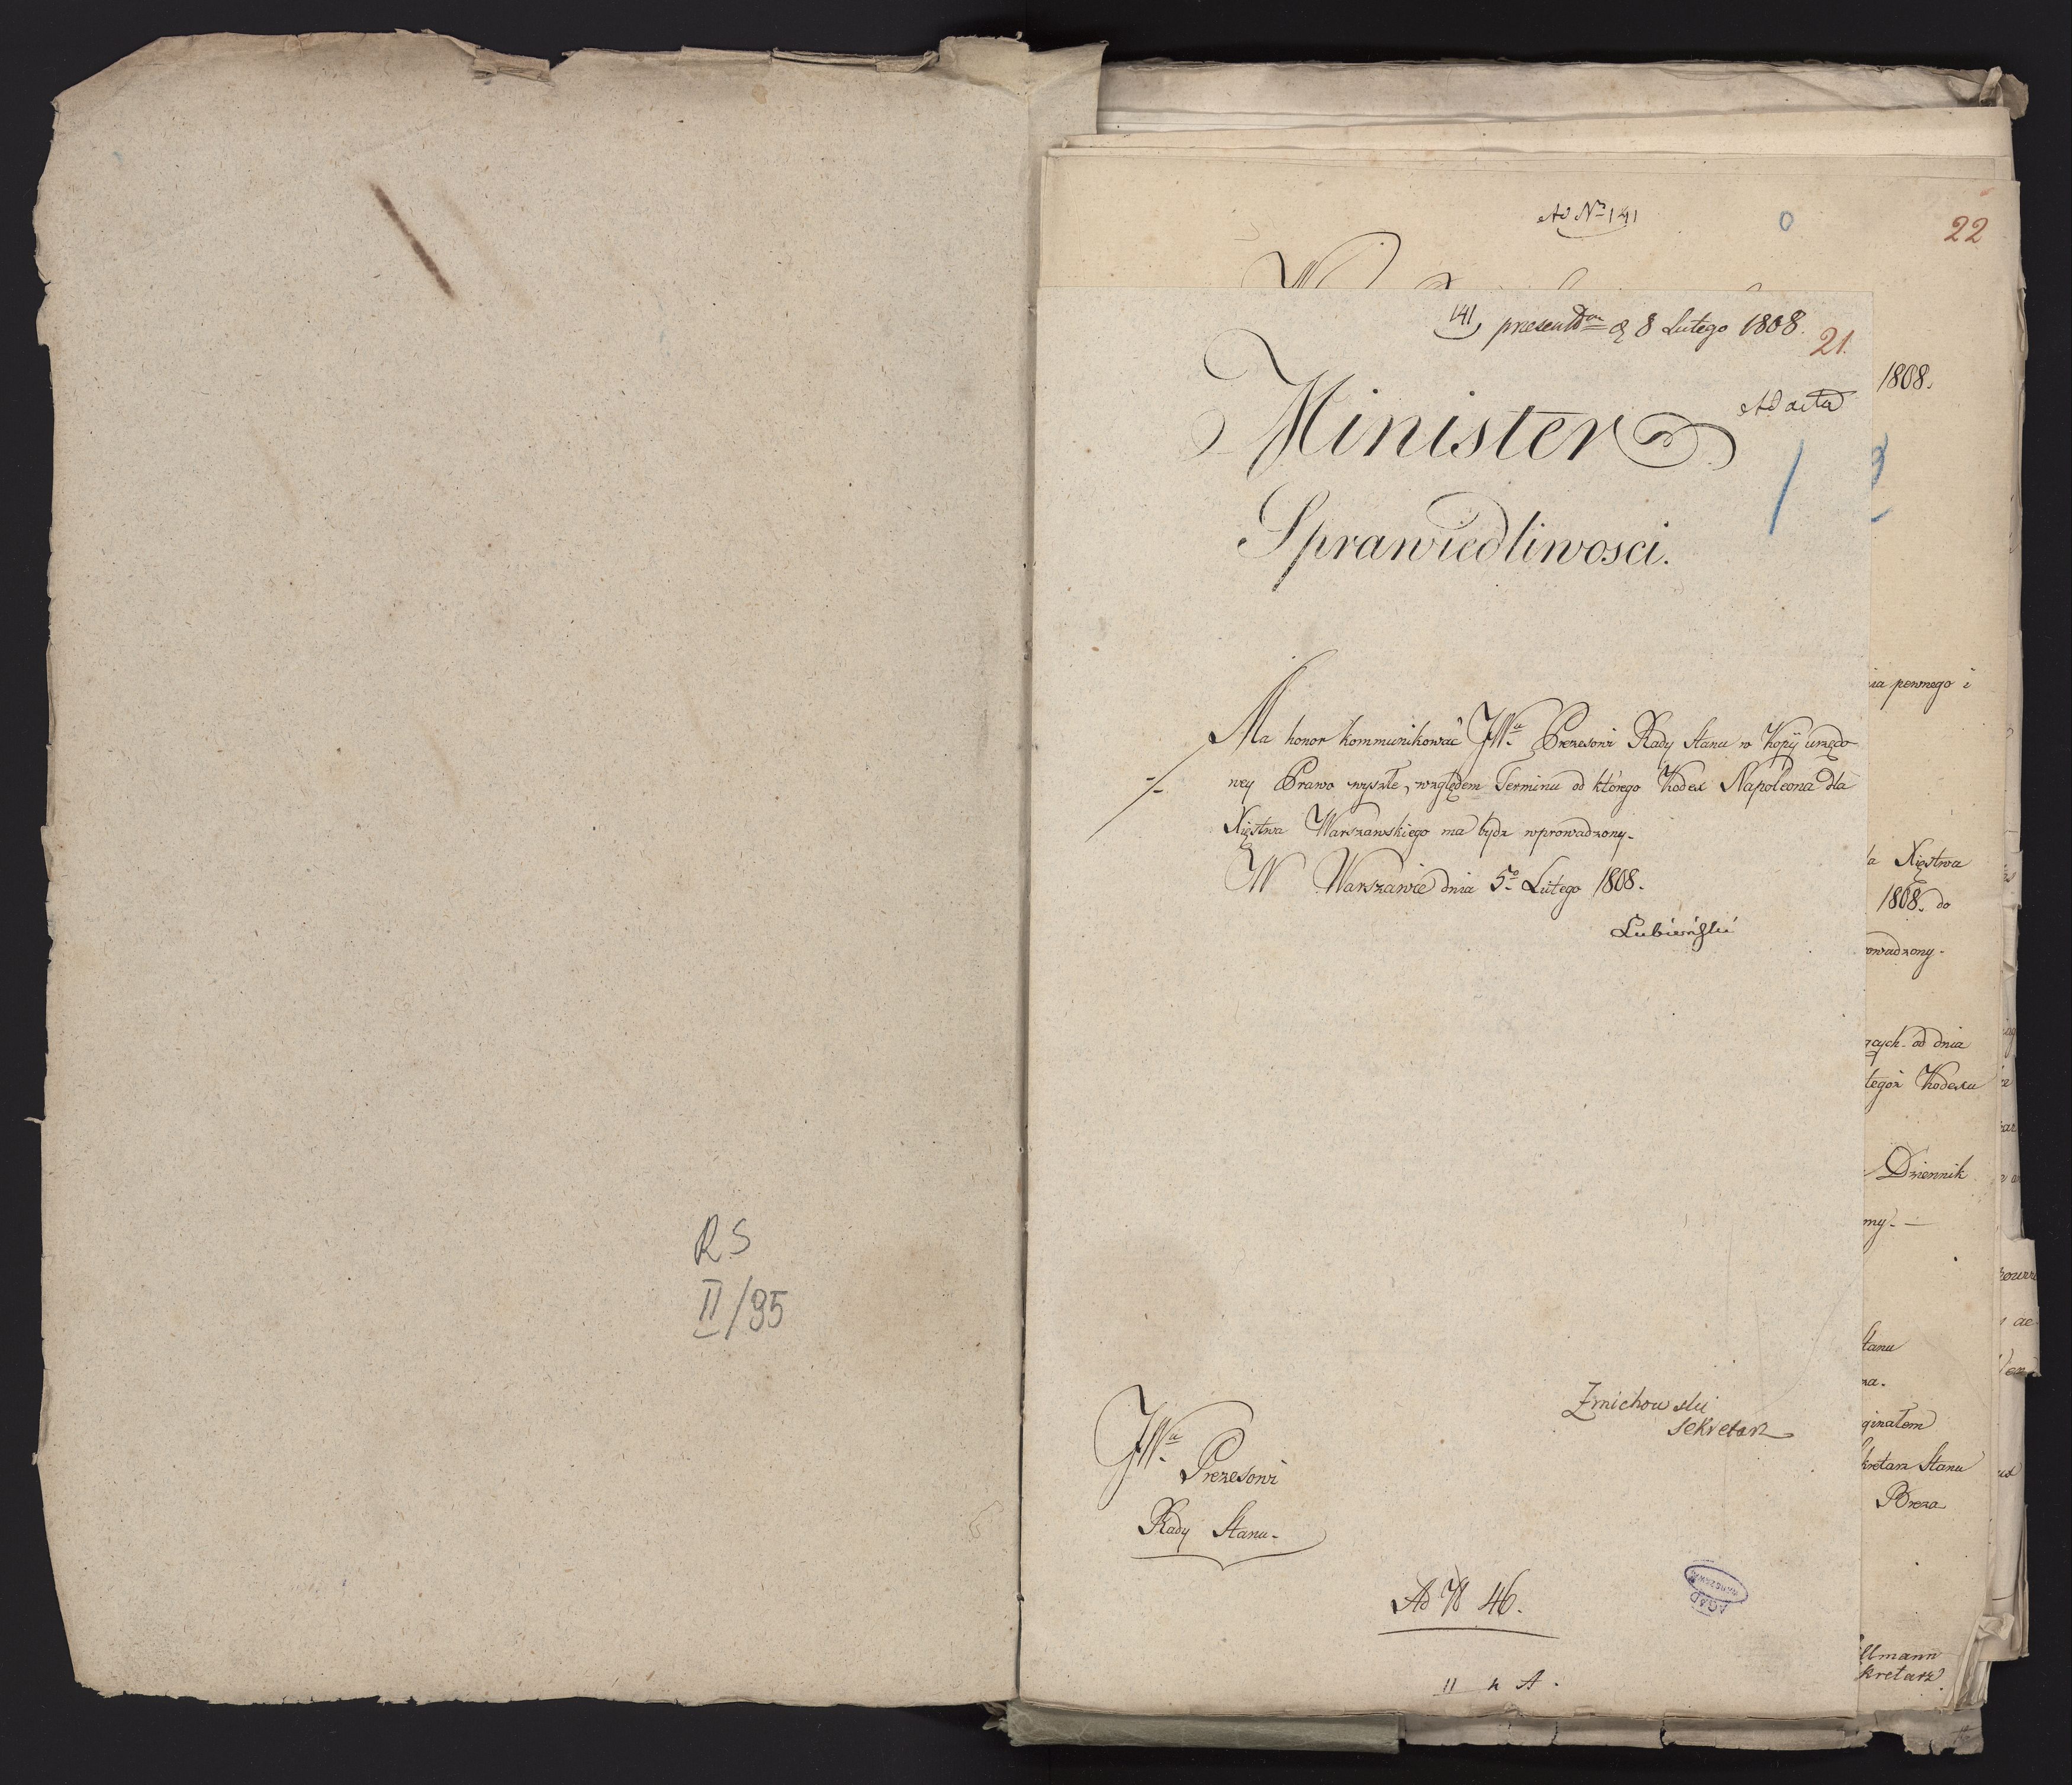 RS
II/95
Ad Nro 141
0
22
141, praesentatum d 8 Lutego 1808.
21.
Ad acta
1
Minister
Sprawiedliwosci.
Ma honor kommunikować JWu. Prezesowi Rady Stanu w Kopij urzędo
wey Prawo wyszłe, względem Terminu od którego Kodex Napoleona dla
Xięstwa Warszawskiego ma bydz wprowadzony.
W Warszawie dnia 5o. Lutego 1808.
Lubieński
Zmichowski
Sekretarz
JWu.
Prezesowi
Rady Stanu.
Ad N 46.
AGAD
WARSZAWA
1808.
ia pewnego i
la Xięstwa
1808. do
owadzony.
zcych od dnia
tegoż Kodexu
Dziennik
my. —
Stanu
za.
ginałem
kretarz Stanu
Breza
llmann
kretarz.